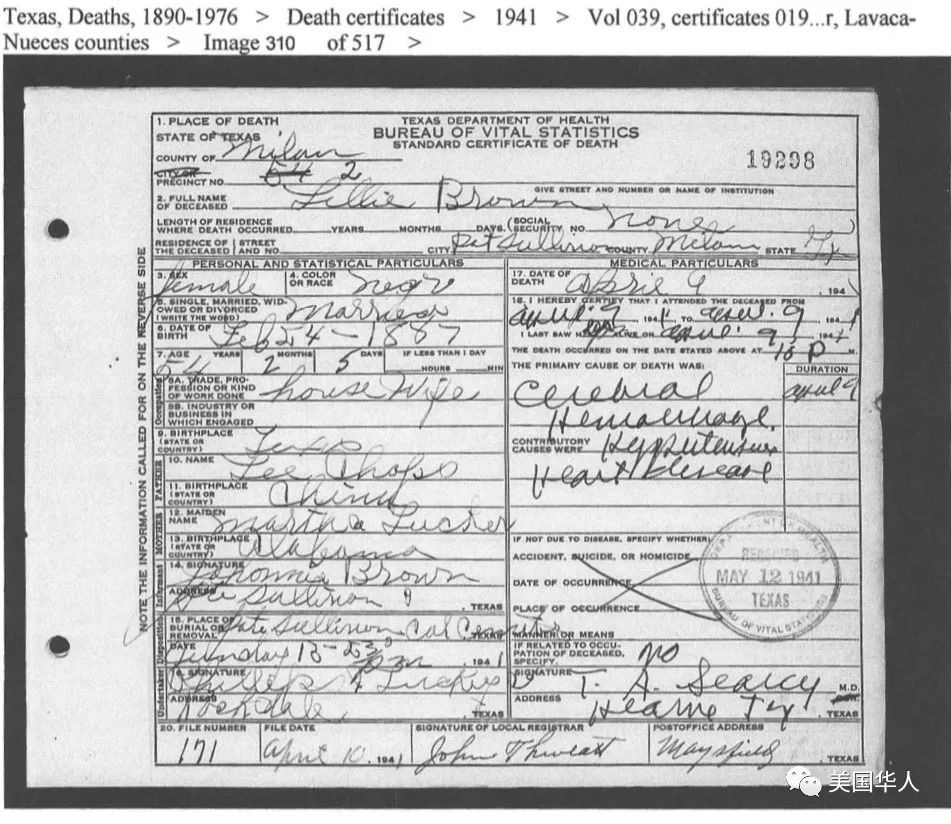 Texas, Deaths, 1890-1976 > Death certificates > 1941 > Vol 039, certificates 019...r, Lavaca-
Nueces counties > Image 310 of 517 >
TEXAS DEPARTMENT OF HEALTH
BUREAU OF VITAL STATISTICS
STANDARD CERTIFICATE OF DEATH
19298
NOTE THE INFORMATION CALLED FOR ON THE REVERSE SIDE
1. PLACE OF DEATH
STATE OF TEXAS
COUNTY OF Milam
CITY OR
PRECINCT NO. 64 2
GIVE STREET AND NUMBER OR NAME OF INSTITUTION
2. FULL NAME
OF DECEASED Lillie Brown
LENGTH OF RESIDENCE
WHERE DEATH OCCURRED YEARS MONTHS DAYS (SOCIAL
SECURITY NO. none
RESIDENCE OF STREET
THE DECEASED AND NO. CITY COUNTY Milam STATE Tx
PERSONAL AND STATISTICAL PARTICULARS
3. SEX female
4. COLOR
OR RACE Negro
5. SINGLE, MARRIED, WID-
OWED OR DIVORCED
(WRITE THE WORD) Married
6. DATE OF
BIRTH Feb 24 - 1887
7. AGE YEARS MONTHS DAYS IF LESS THAN 1 DAY
54 2 5 HOURS MIN
Occupation
8A. TRADE, PRO-
FESSION OR KIND
OF WORK DONE house Wife
8B. INDUSTRY OR
BUSINESS IN
WHICH ENGAGED
9. BIRTHPLACE
(STATE OR
COUNTRY) Texas
FATHER
10. NAME Lee Chops
11. BIRTHPLACE
(STATE OR
COUNTRY) China
MOTHER
12. MAIDEN
NAME Martha Tucker
13. BIRTHPLACE
(STATE OR
COUNTRY) Alabama
Informant
14. SIGNATURE Brown
ADDRESS , TEXAS
Disposition
15. PLACE OF
BURIAL OR
REMOVAL TEXAS
DATE Sunday 194 1
Undertaker
16. SIGNATURE Phillips &
ADDRESS Rockdale , TEXAS
MEDICAL PARTICULARS
17. DATE OF
DEATH April 9 , 194
18. I HEREBY CERTIFY THAT I ATTENDED THE DECEASED FROM
april 9 194 1 TO april 9 , 194 1
I LAST SAW H ALIVE ON april 9 194 1
THE DEATH OCCURRED ON THE DATE STATED ABOVE AT P M.
THE PRIMARY CAUSE OF DEATH WAS: DURATION
Cerebral april 9
Hemorrhage
CONTRIBUTORY
CAUSES WERE Hypertensive
Heart disease
IF NOT DUE TO DISEASE, SPECIFY WHETHER:
ACCIDENT, SUICIDE, OR HOMICIDE
DATE OF OCCURRENCE
PLACE OF OCCURRENCE
MANNER OR MEANS
IF RELATED TO OCCU-
PATION OF DECEASED,
SPECIFY. NO
SIGNATURE T. A. Searcy M.D.
ADDRESS Hearne Tx , TEXAS
DEPARTMENT OF HEALTH
RECEIVED
MAY 12 1941
TEXAS
BUREAU OF VITAL STATISTICS
20. FILE NUMBER FILE DATE SIGNATURE OF LOCAL REGISTRAR POSTOFFICE ADDRESS
171 April 10, 1941 John Thweatt Maysfield , TEXAS
美国华人